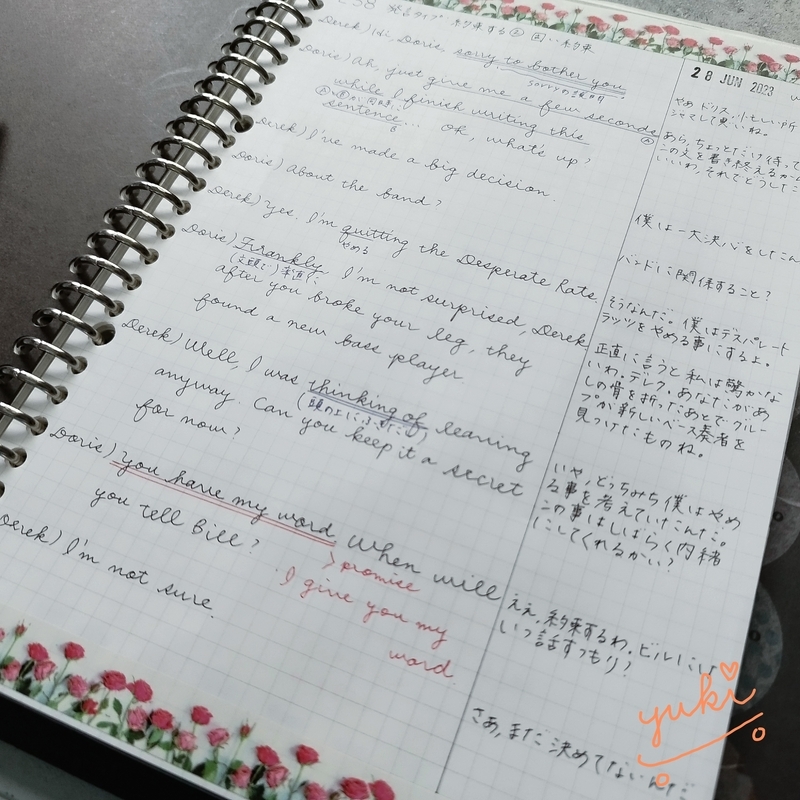 58 発言タイプ 約束する② 固い約束
28 JUN 2023
Derek) Hi, Doris, sorry to bother you
sorryの説明
Doris) Ah, just give me a few seconds
while I finish writing this
sentence... Oh, what's up?
Derek) I've made a big decision.
Doris) About the band?
Derek) Yes. I'm quitting the Desperate Rats.
やめる
Doris) Frankly, I'm not surprised, Derek
(文頭で) 率直に
after you broke your leg, they
found a new bass player
Derek) Well, I was thinking of leaving
anyway. Can you keep it a secret
for now?
Doris) you have my word When will
you tell Bill?
promise
I give you my
word.
Derek) I'm not sure.
やあ ドリス. 忙しい所
ジャマして悪いね。
あら, ちょっとだけ待って
この文を書き終えるから
いいわ, それでどうした
僕は一大決心をしたん
バンドに関係すること?
そうなんだ。僕はデスパレート
ラッツをやめる事にするよ。
正直に言うと私は驚かな
いわ. デレク, あなたがあ
しの骨を折ったあとで, グルー
プが新しいベース奏者を
見つけたものね。
いや, どっちみち僕はやめ
る事を考えていたんだ。
この事はしばらく内緒
にしてくれるかい?
ええ, 約束するわ. ビルには
いつ話すつもり?
さあ, まだ決めてないんだ
yuki